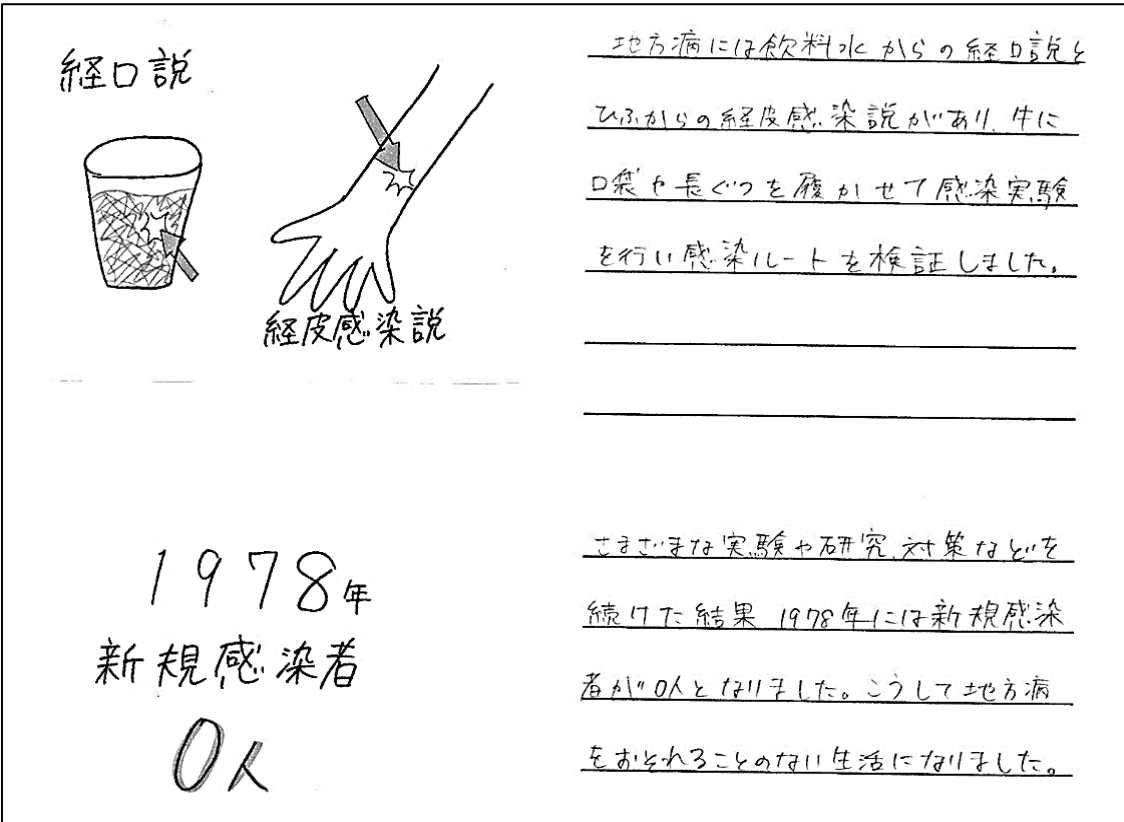 経口説
経皮感染説
地方病には飲料水からの経口説と
ひふからの経皮感染説があり、牛に
口袋や長ぐつを履かせて感染実験
を行い感染ルートを検証しました。
1978年
新規感染者
0人
さまざまな実験や研究、対策などを
続けた結果 1978年には新規感染
者が0人となりました。こうして地方病
をおそれることのない生活になりました。